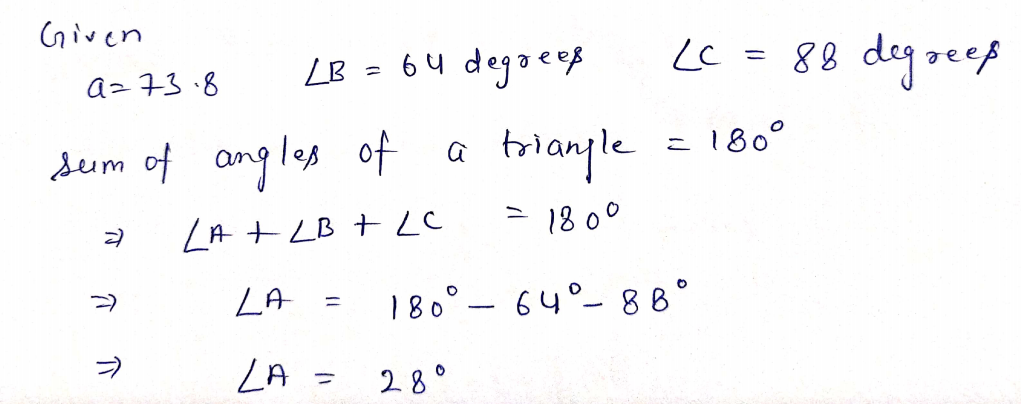 Given
a=73.8 ∠B = 64 degrees ∠C = 88 degrees
sum of angles of a triangle = 180°
⇒ ∠A + ∠B + ∠C = 180°
⇒ ∠A = 180° - 64° - 88°
⇒ ∠A = 28°